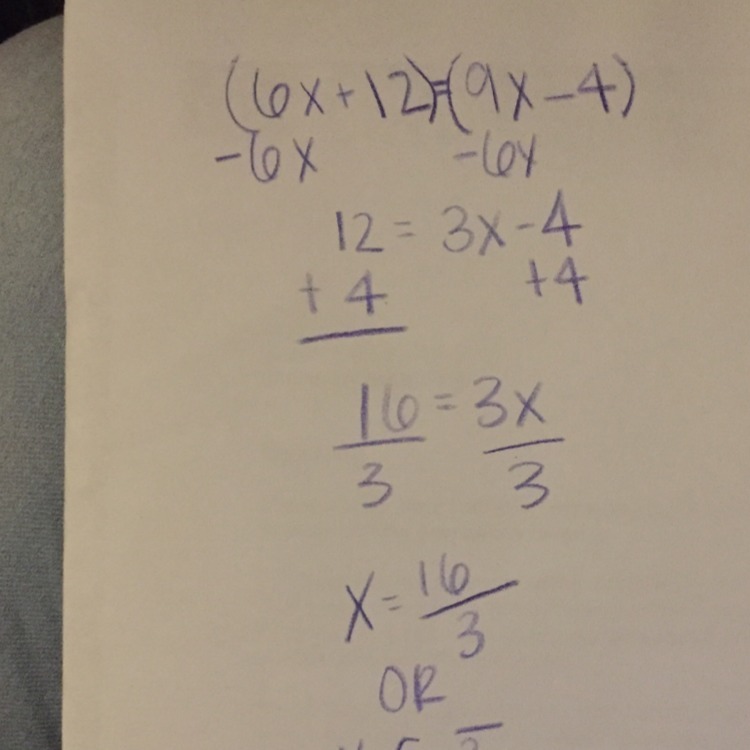 (6x+12)=(9x-4)
-6x -6x
12 = 3x-4
+4 +4
16 = 3x
3 3
x = 16/3
OR